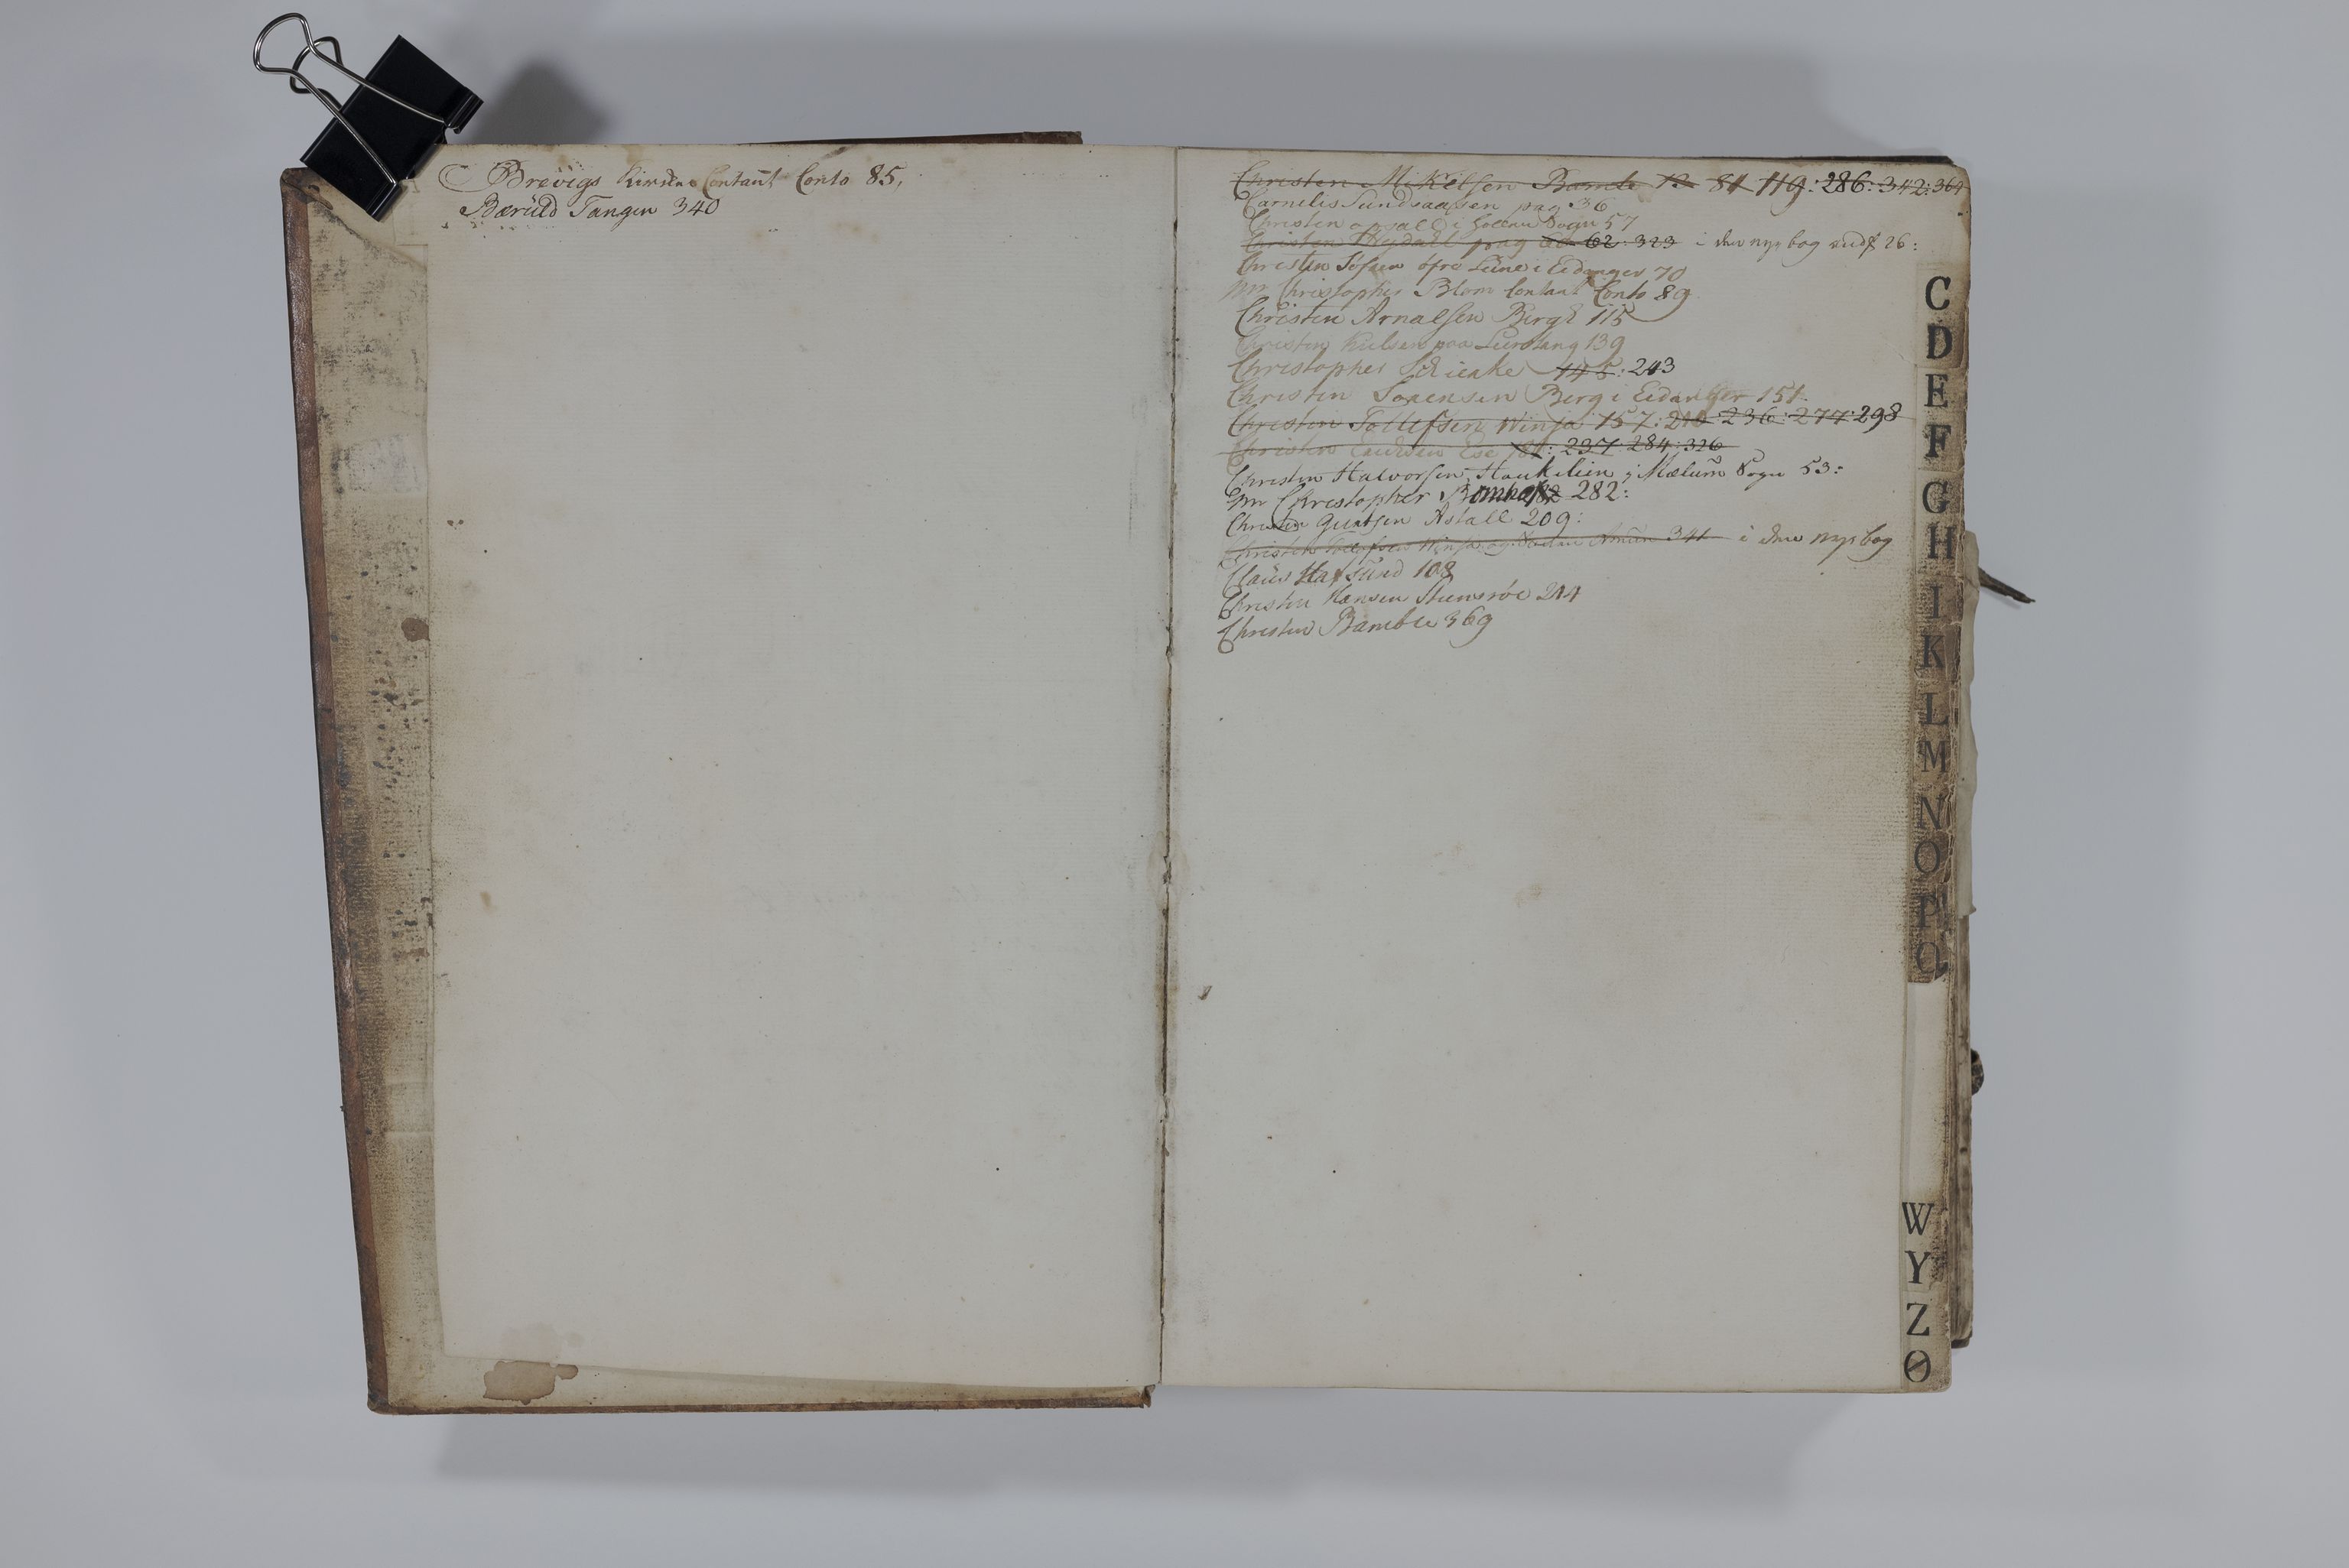 Brevigs Kirkes Contant Conto 85,
Bærüld Tangen 340
Christen Mikkelsen Bamble 12 81 119: 286: 342: 369
Carnelis Sundsaasen pag 36
Christen opsall i Sogn 57
Christen pag 62: 323 i den nye bog 26:
Christen öfre i Eidanger 70
Mr Christopher Blom Contant Conto 89
Christen Arnalsen Berge 115
Christen paa 139
Christopher 145: 243
Christen Sørensen Berg i Eidanger 151
Christen Tollefsen Winja 157: 210 236: 274: 298
Christen Ese 237: 284: 326
Christen Halvorsen Haukelien i Mælum Sogn 53:
Mr Christopher 282:
Christen Astall 209:
Christen Winja og 341 i den nye bog
Claüs 108
Christen Hansen Steensröe 214
Christen Bamble 369
C
D
E
F
G
H
I
K
L
M
N
O
P
Q
W
Y
Z
Ø